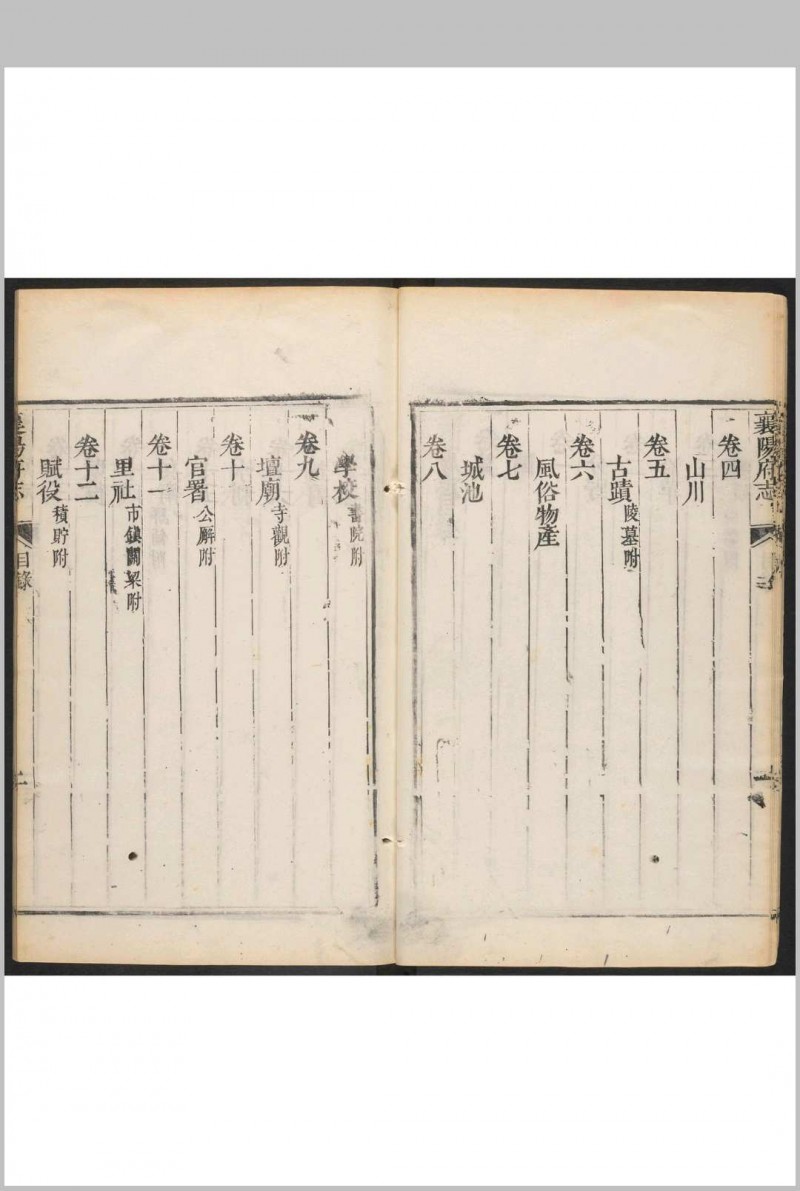 襄陽府志
卷四
山川
卷五
古蹟 陵墓附
卷六
風俗物產
卷七
城池
卷八
學校 書院附
卷九
壇廟 寺觀附
卷十
官署 公廨附
卷十一
里社 市鎮關梁附
卷十二
賦役 積貯附
襄陽府志
目錄
二